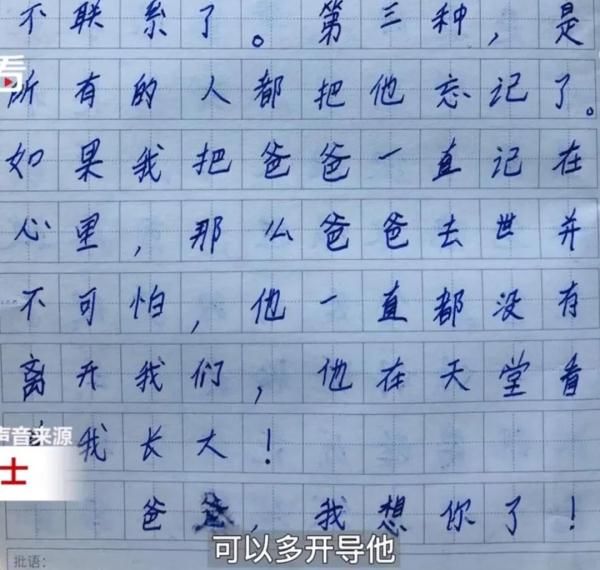 不联系了。第三种，是
看
所有的人都把他忘记了。
如果我把爸爸一直记在
心里，那么爸爸去世并
不可怕，他一直都没有
离开我们，他在天堂看
声音来源
我长大！
士
爸爸，我想你了！
可以多开导他
批语：